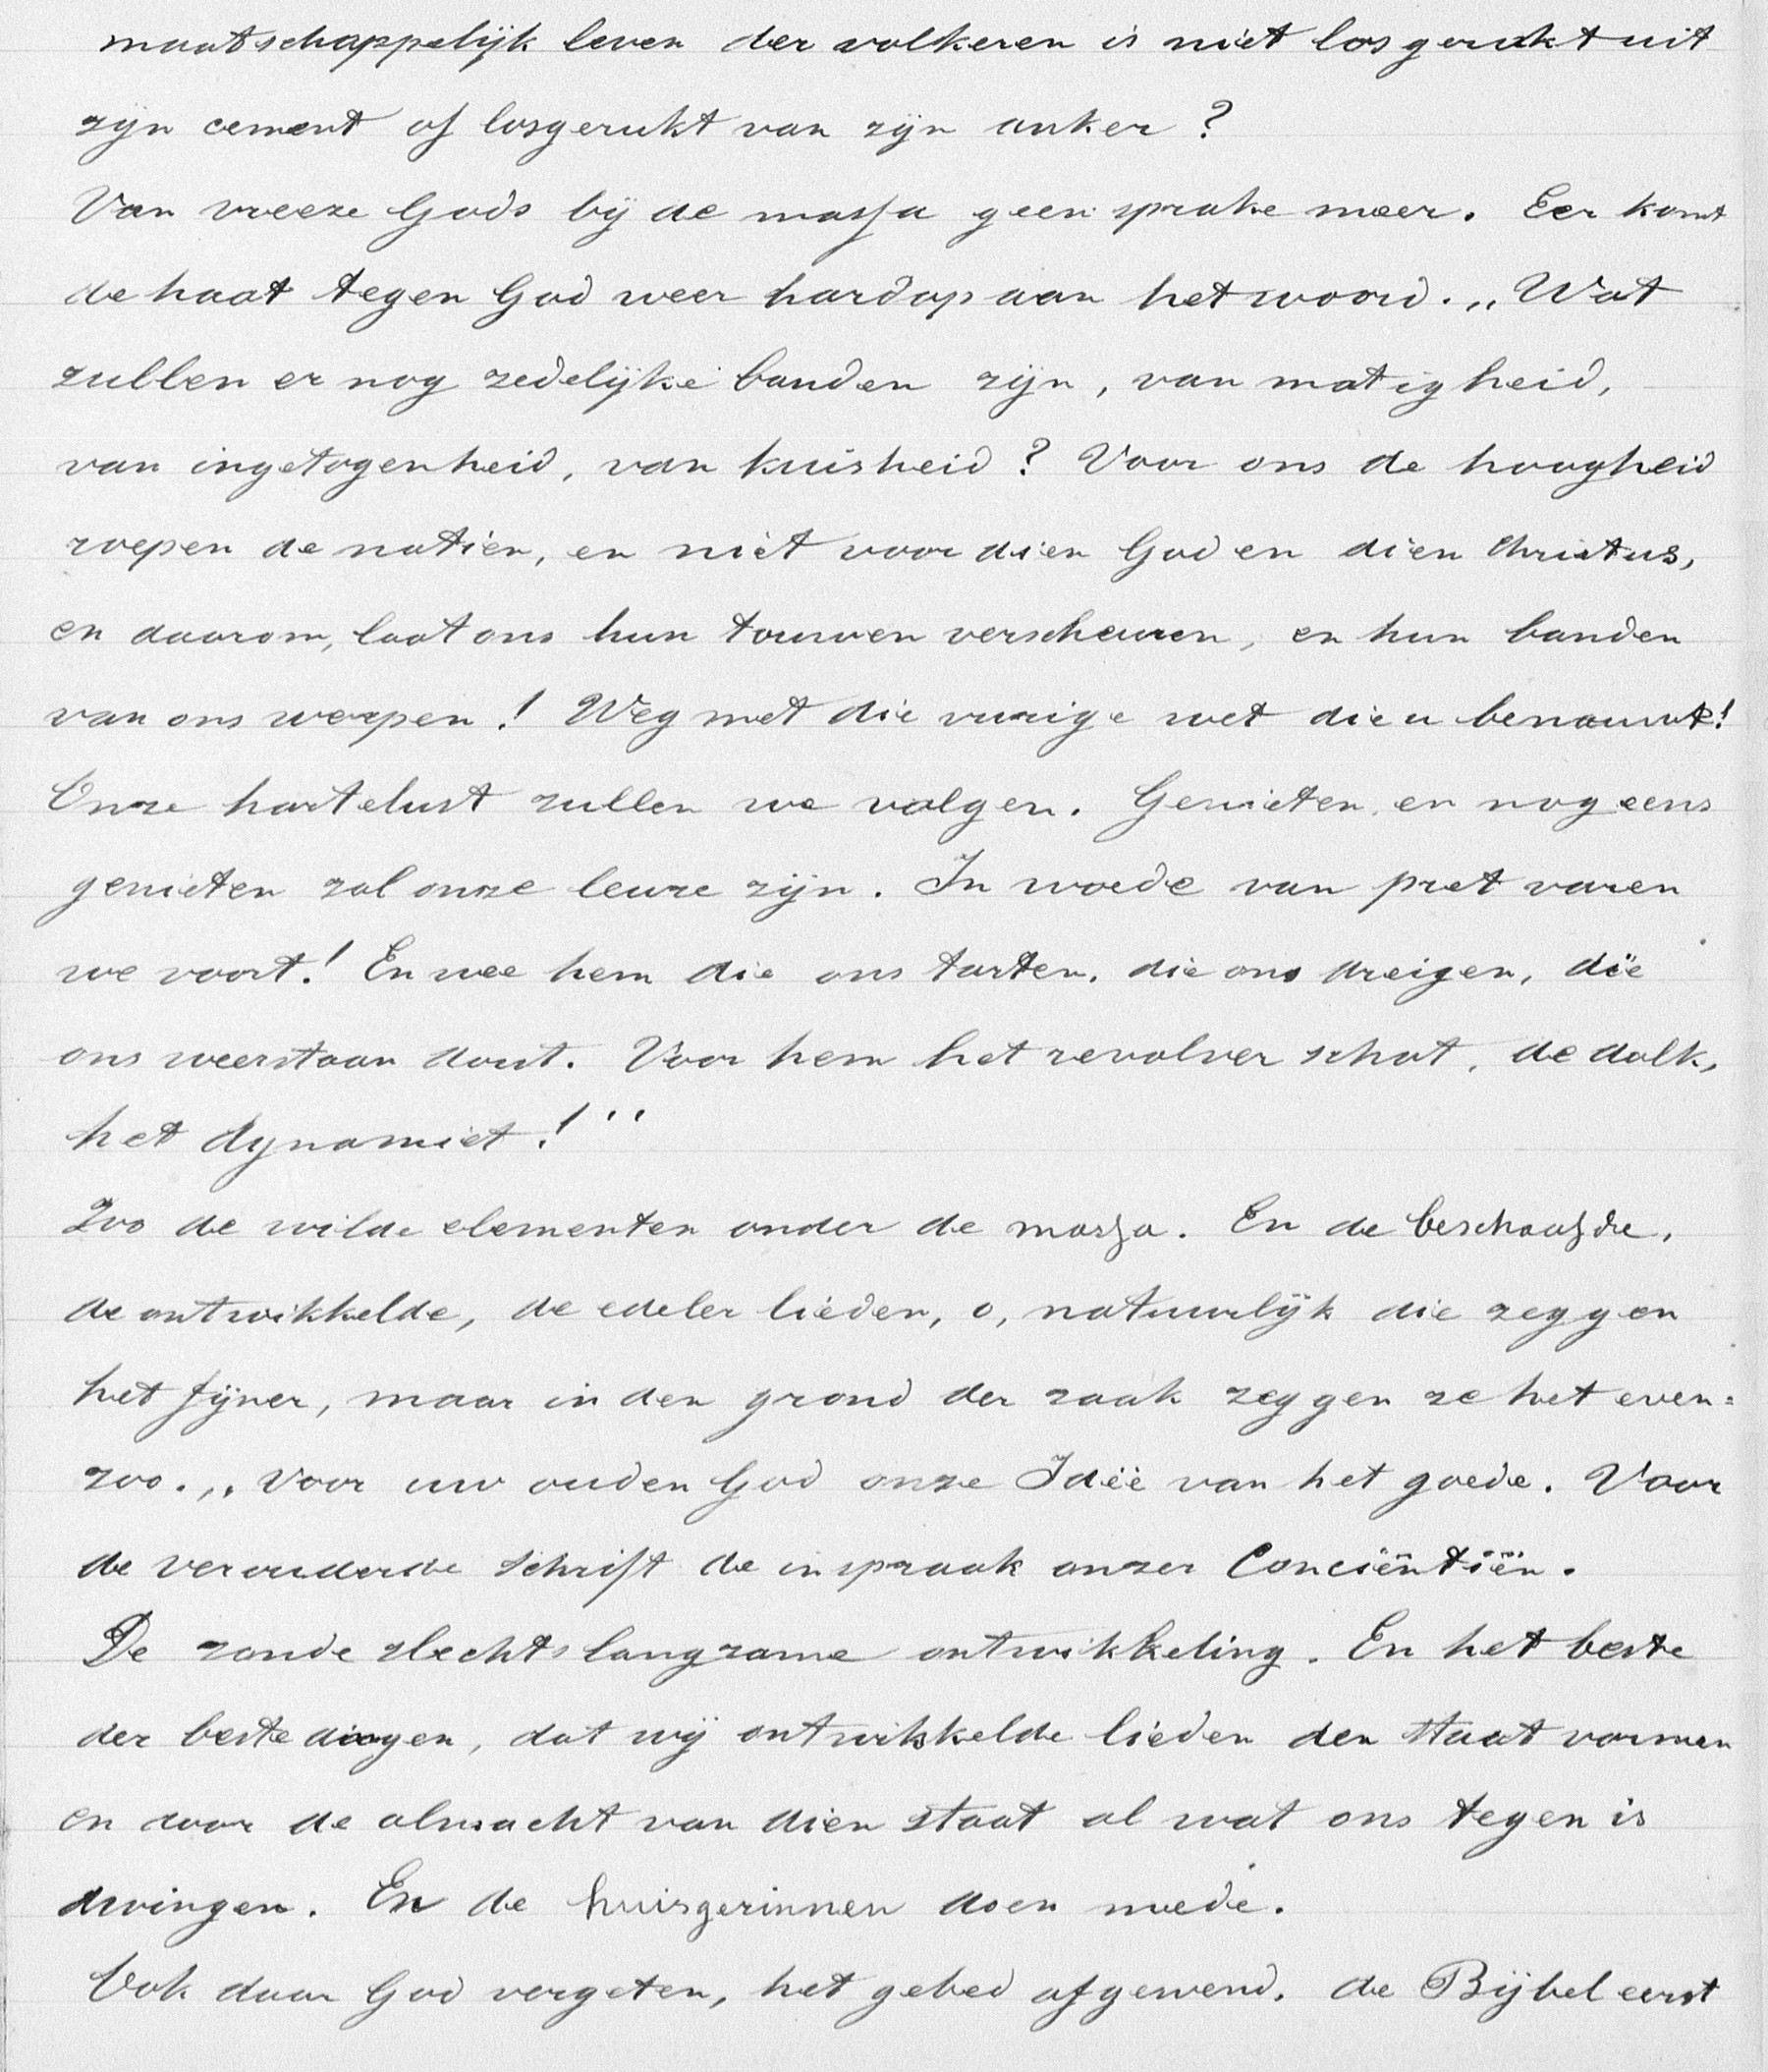 maatschappelijk leven der volkeren is niet losgerukt uit
zijn cement of losgerukt van zijn anker?
Van vreeze Gods bij de massa geen sprake meer. Eer komt
de haat tegen God weer hardop aan het woord. „Wat
zullen er nog zedelijke banden zijn, van matigheid,
van ingetogenheid, van kuisheid? Voor ons de hoogheid
roepen de natien, en niet voor dien God en dien Christus,
en daarom, laat ons hun touwen verscheuren, en hun banden
van ons werpen! Weg met die vurige wet die u benauwt!
Onze hartelust zullen we volgen. Genieten en nog eens
genieten zal onze leuze zijn. In woede van pret varen
we voort! En wee hem die ons tarten, die ons dreigen, die
ons weerstaan dorst. Voor hem het revolver schot, de dolk,
het dynamiet!"
Zoo de wilde elementen onder de massa. En de beschaafde,
de ontwikkelde, de edeler lieden, o, natuurlijk die zeggen
het fijner, maar in den grond der zaak zeggen ze het even=
zoo. „Voor uw ouden God onze Ideë van het goede. Voor
de verouderde schrift de inspraak onzer Conciëntiën.
De zonde slechts langzame ontwikkeling. En het beste
der beste dingen, dat wij ontwikkelde lieden den staat vormen
en door de almacht van dien staat al wat ons tegen is
dwingen. En de huisgezinnen doen mede.
Ook daar God vergeten, het gebed afgewend, de Bijbel eerst